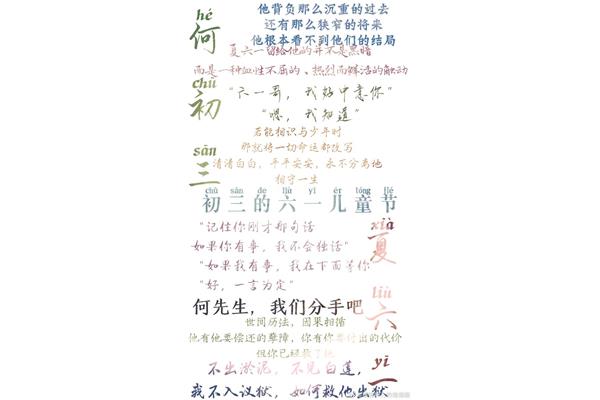 hé
何
chū
初
sān
三
他背负那么沉重的过去
还有那么狭窄的将来
他根本看不到他们的结局
夏六一留给他的并不是黑暗
而是一种血性不屈的、热烈而鲜活的触动
“六一哥，我好中意你”
“嗯，我知道”
若能相识与少年时
那就将一切命运都改写
清清白白，平平安安，永不分离他
相守一生
chū sān de liù yī ér tóng jié
初三的六一儿童节
“记住你刚才那句话
如果你有事，我不会独活”
“如果我有事，我在下面等你”
“好，一言为定”
何先生，我们分手吧
世间历法，因果相循
他有他要偿还的孽障，你有你要付出的代价
但你已经救了他
不出淤泥，不见白莲，
我不入议狱，如何救他出狱
xià
夏
liù
六
yī
一